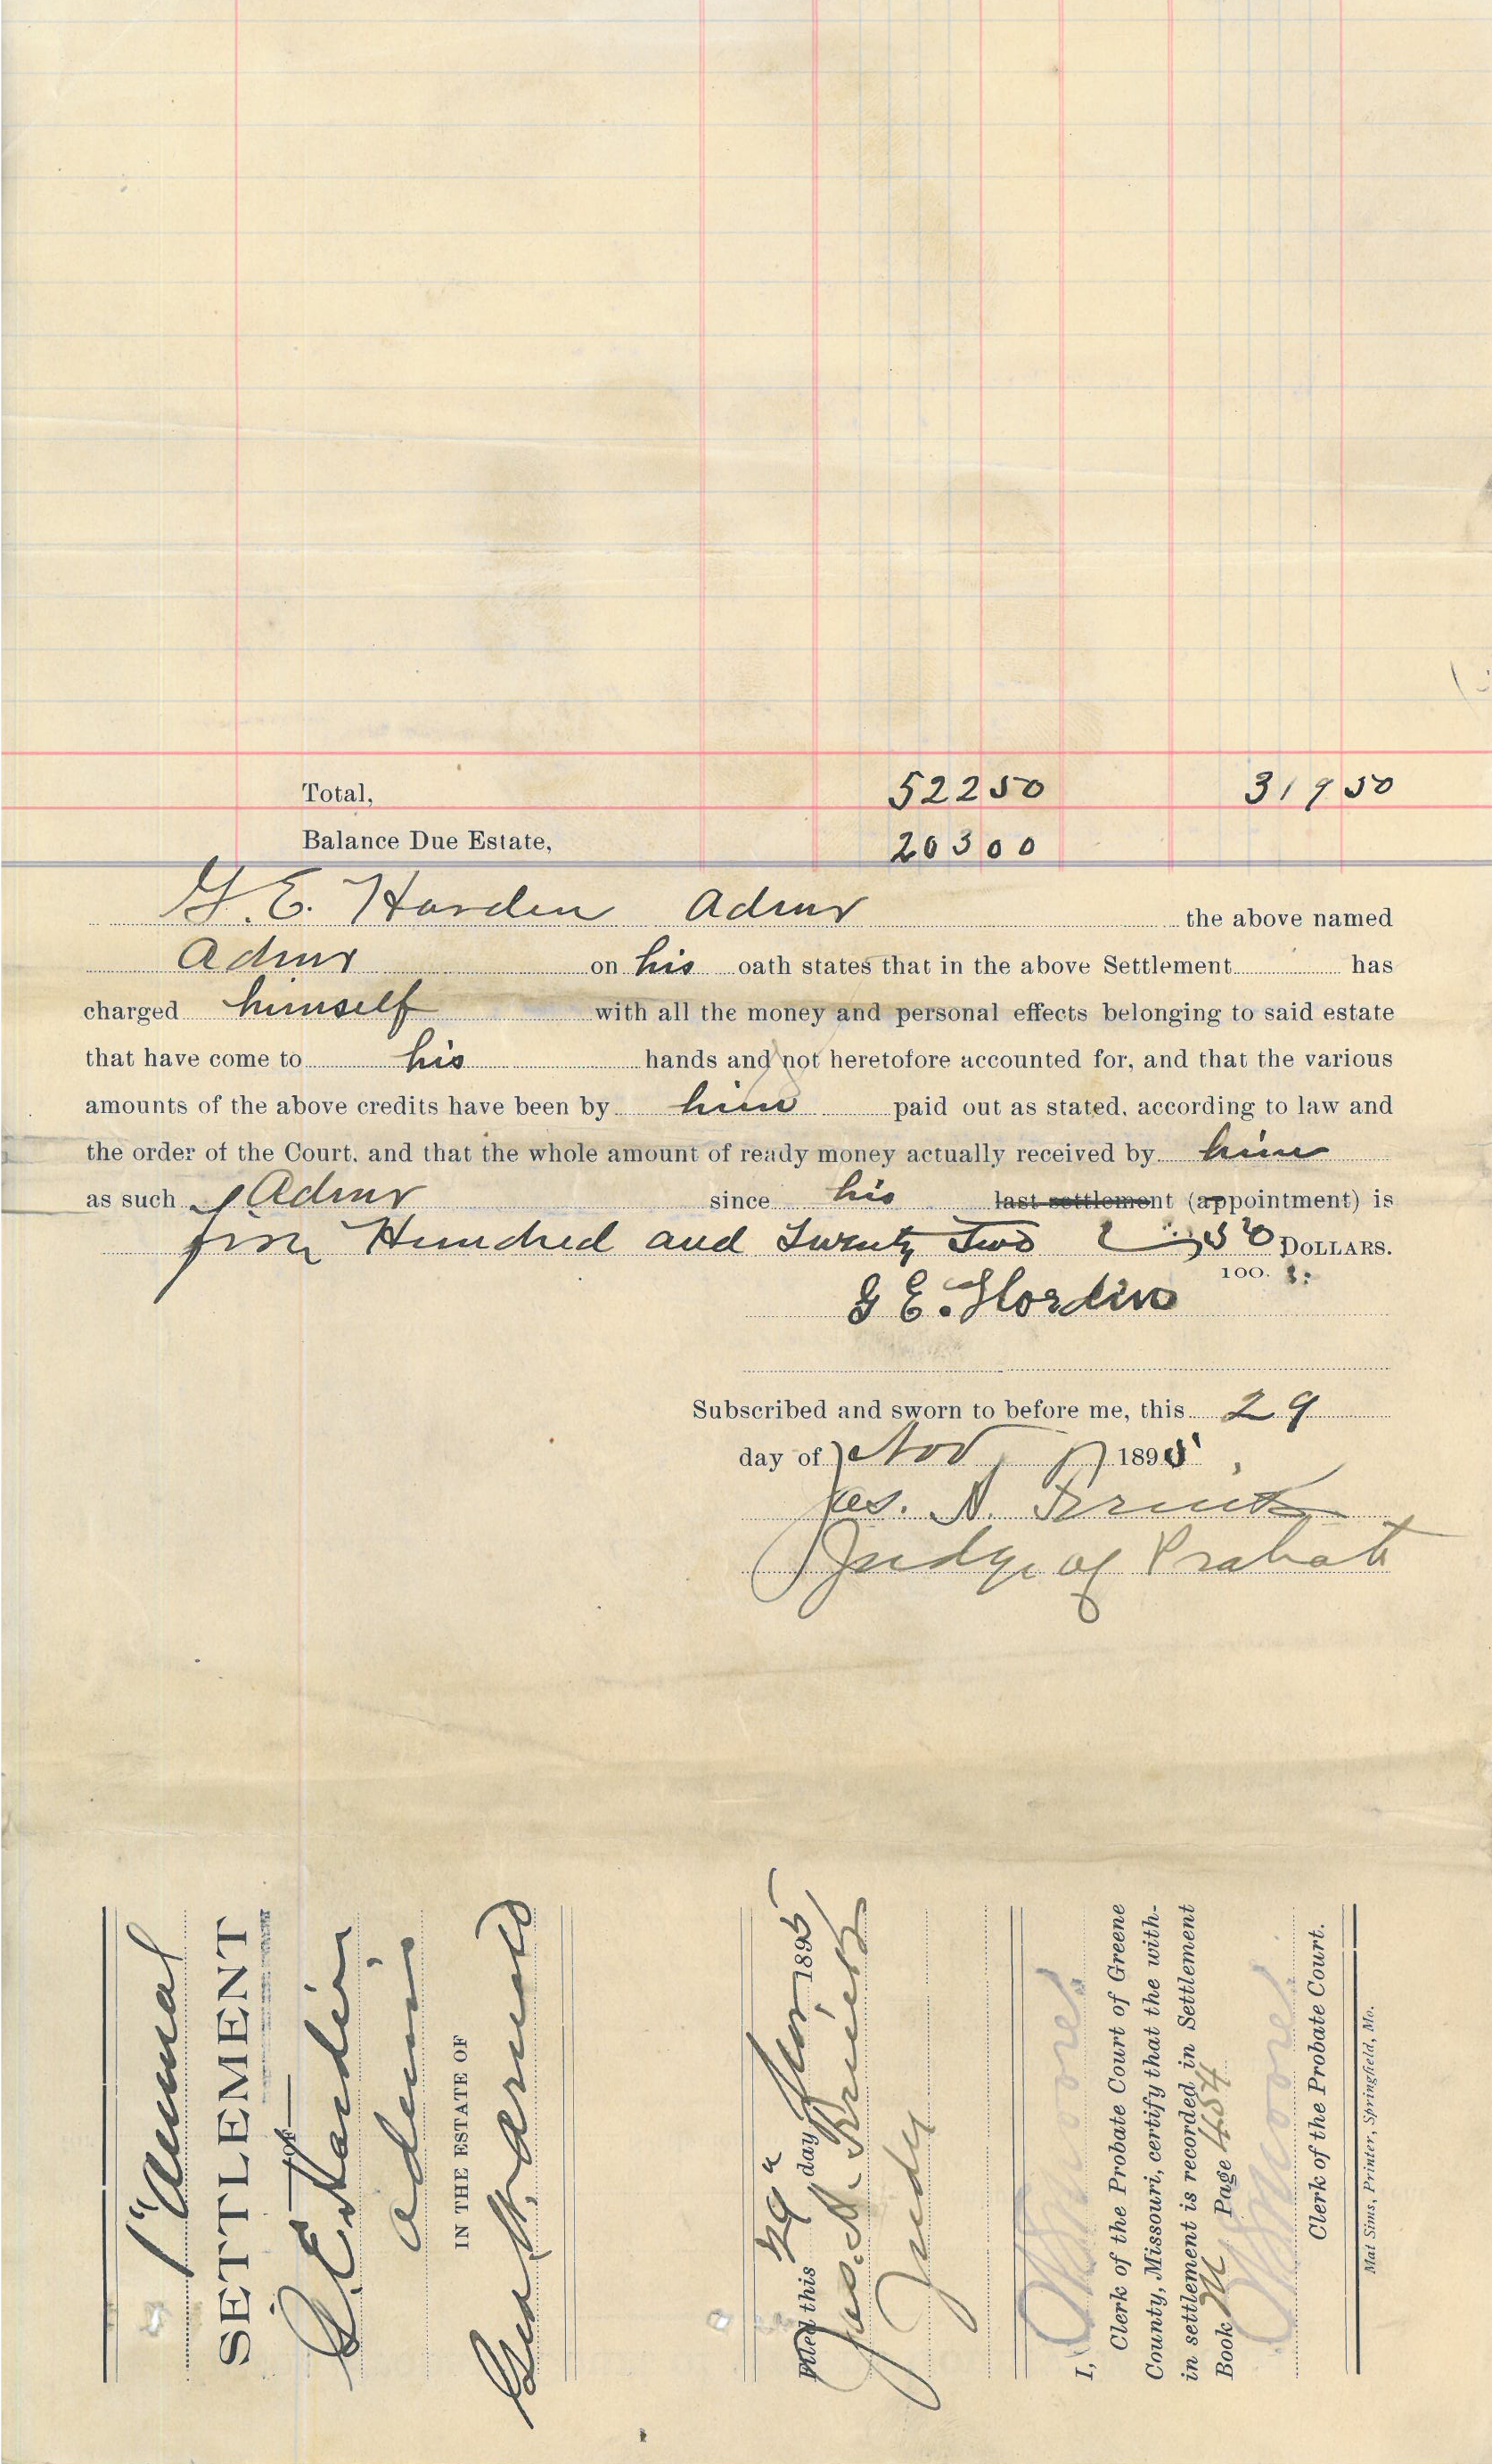 Total, 522 50 319 50
Balance Due Estate, 203 00
G. E. Harden Admr the above named
Admr on his oath states that in the above Settlement has
charged himself with all the money and personal effects belonging to said estate
that have come to his hands and not heretofore accounted for, and that the various
amounts of the above credits have been by him paid out as stated, according to law and
the order of the Court, and that the whole amount of ready money actually received by him
as such Admr since his last settlement (appointment) is
five Hundred and Twenty Two 50 DOLLARS.
100.
G E. Hordin
Subscribed and sworn to before me, this 29
day of Nov 1895
Jas. A.
Judge of Probate
1" Annual
SETTLEMENT
OF
G. E. Hardin
admr
IN THE ESTATE OF
Filed this 29" day Nov 1895
Jas. A.
Judge
I,
Clerk of the Probate Court of Greene
County, Missouri, certify that the with-
in settlement is recorded in Settlement
Book M Page 454
Clerk of the Probate Court.
Mat Sims, Printer, Springfield, Mo.